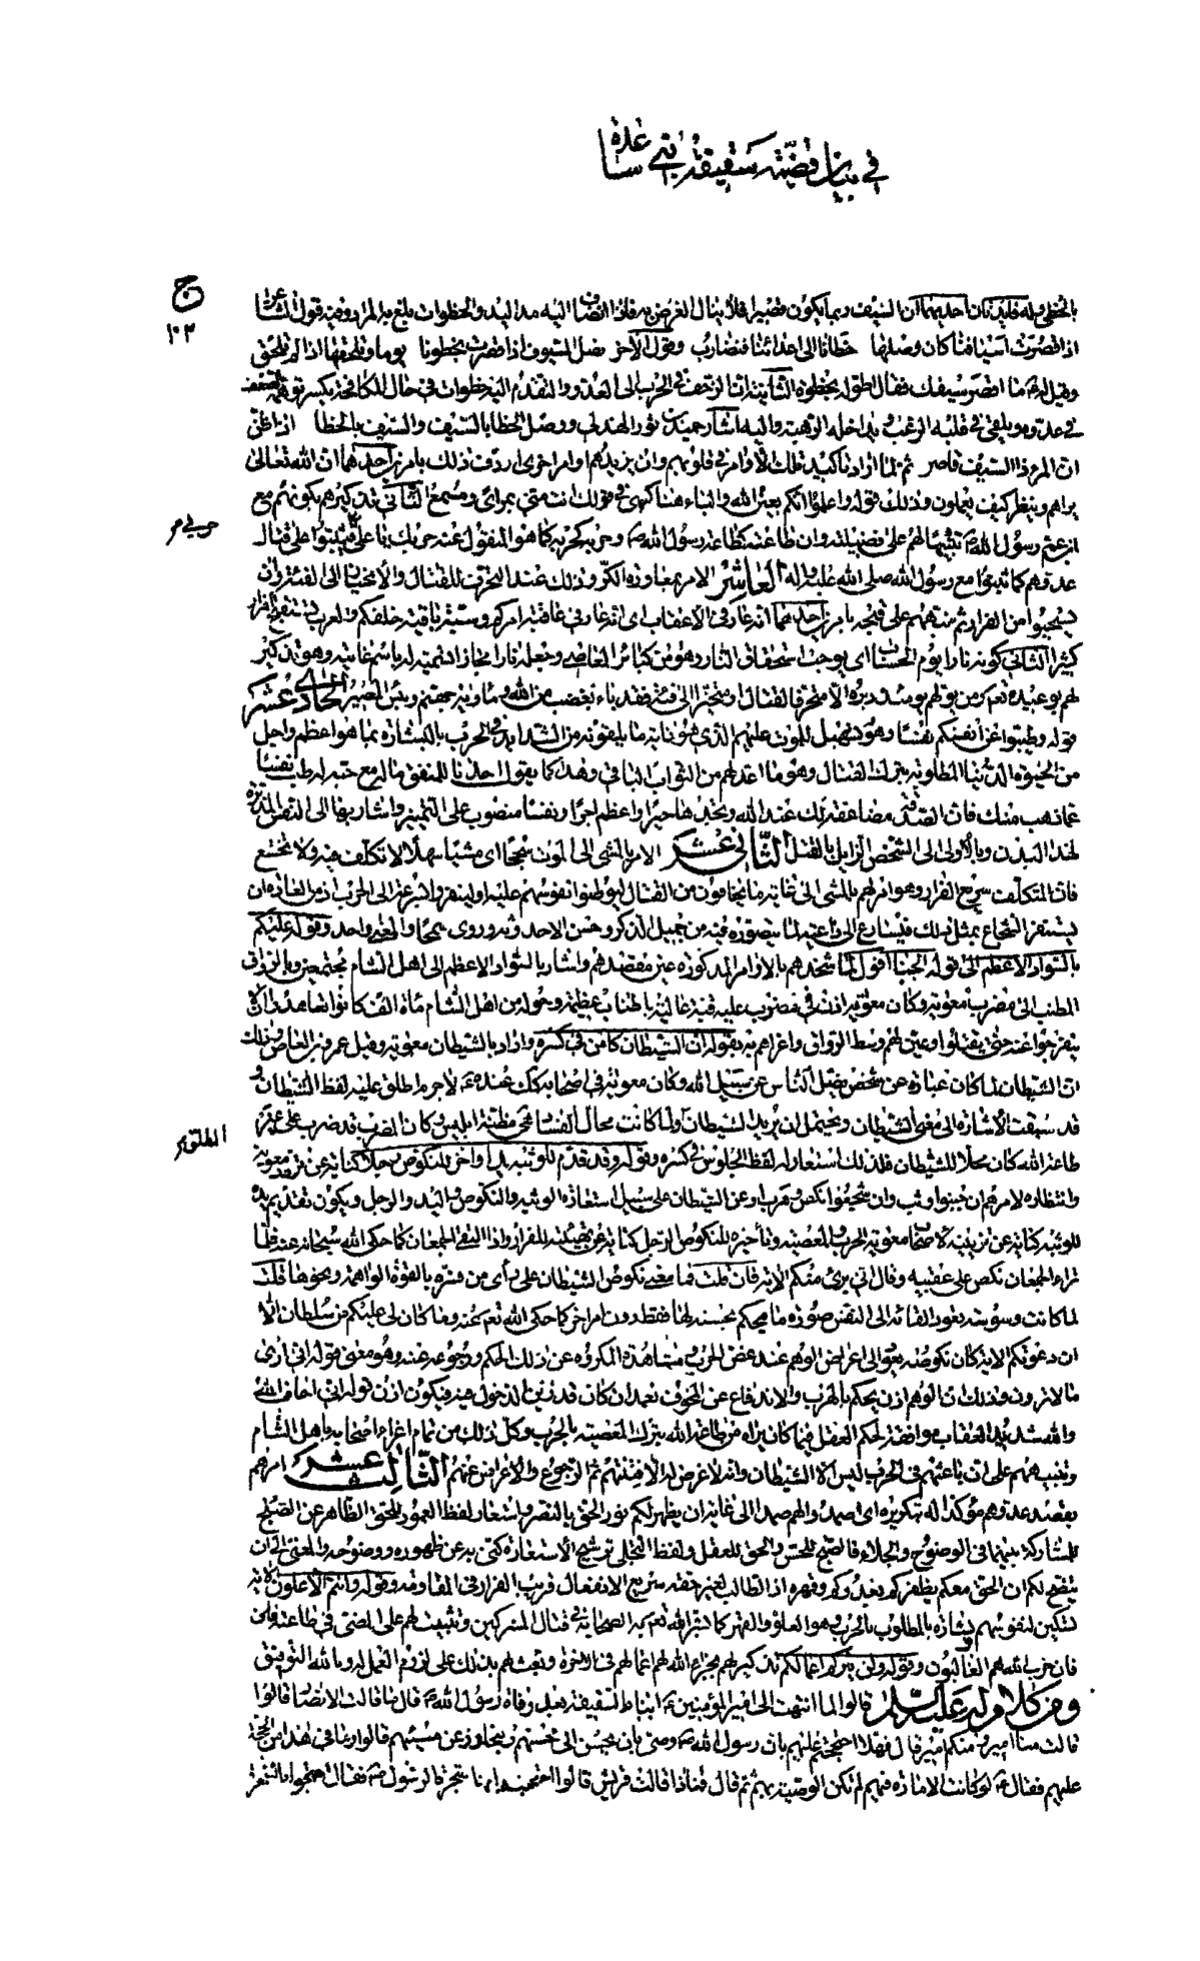 في بيان قضية سقيفة بني ساعدة
ج
١٠٣
بالخطى وله فائدتان احديهما ان السيف ربما يكون قصيرا فلا ينال الغرض به فاذا انضاف اليه مد اليد والخطوات بلغ به المراد وفيه قول الشاعر
اذا قصرت اسيافنا كان وصلها خطانا الى اعدائنا فنضارب وقول الآخر نصل السيوف اذا قصرن بخطونا يوما ونلحقها اذا لم تلحق
وقيل له ما اقصر سيفك فقال اطوله بخطوة الثانية ان الزحف في الحرب الى العدو والتقدم اليه خطوات في حال المكافحة يكسر توهمه الضعف
في عدوه ويلقى في قلبه الرعب ويداخله الرهبة واليه اشار حميد بن ثور الهلالي ووصل الخطا بالسيف والسيف بالخطا اذا ظن
ان المرء ذا السيف قاصر ثم لما اراد تأكيد تلك الأوامر في قلوبهم وان يزيدهم اوامر اخرى اردف ذلك بامرين احدهما ان الله تعالى
يراهم وينظر كيف يعملون وذلك قوله واعلموا انكم بعين الله والباء هنا كهى في قولك انت مني بمرأى ومسمع الثاني تذكيرهم بكونهم مع
ابن عم رسول الله ص تنبيها لهم على فضيلته وان طاعته كطاعة رسول الله ص وحربه كحربه كما هو المنقول عنه حربك يا علي حربي فيثبتوا على قتال
عدوهم كما ثبتوا مع رسول الله صلى الله عليه واله العاشر الامر بمعاودة الكر وذلك عند التحرف للقتال والانحياز الى الفئة وان
يستحيوا من الفرار ثم نبههم على قبحه بامرين احدهما انه عار في الاعقاب اى انه عار في عاقبة امركم وسبة باقية خلفكم والعرب تستقبح الفرار
كثيرا الثاني كونه نارا يوم الحساب اى يوجب استحقاق النار وهو من كبائر المعاصي وجعله نارا مجازا تسمية له باسم غايته وهو تذكير
لهم بوعيد الله تعم كمن يولهم يومئذ دبره الا متحرفا لقتال او متحيزا الى فئة فقد باء بغضب من الله ومأويه جهنم وبئس المصير الحادي عشر
قوله وطيبوا عن انفسكم نفسا وهو تسهيل للموت عليهم الذي هو غاية ما يلقونه من الشدايد في الحرب بالبشارة بما هو اعظم واجل
من الحيوة الدنيا المطلوبة بترك القتال وهو ما اعد لهم من الثواب الباقي وهذا كما يقول احدنا للمنفق ماله مع حبه له طب نفسا
عما ذهب منك فان الصدقة مضاعفة لك عند الله وتجدها خيرا واعظم اجرا ونفسا منصوب على التمييز واشار بها الى النفس المدبرة
لهذا البدن وبالاولى الى الشخص الزايل بالقتل الثاني عشر الامر بالمشي الى الموت سجحا اى مشيا سهلا لا تكلف فيه ولا تخشع
فان المتكلف سريع الفرار وهو امر لهم بالمشي الى غاية ما يخافون من القتال ليوطنوا نفوسهم عليه اذ من العادة ان
يستنفر الشجاع بمثل ذلك فيسارع الى داعيه لما يتصوره فيه من جميل الذكر وحسن الاحدوثة وروى سمحا والمعنى واحد وقوله وعليكم
بالسواد الاعظم الى قوله الجبنا اقول لما شحذهم بالاوامر المذكورة عين مقصدهم واشار بالسواد الاعظم الى اهل الشام مجتمعين وبالرواق
المطنب الى مضرب معوية وكان معوية اذن في مضرب عليه قبة عالية باطناب عظيمة وحوله من اهل الشام مائة الف كانوا تعاهدوا ان لا
ينفرجوا عنه حتى يقتلوا وعين لهم وسط الرواق واغراهم به بقوله ان الشيطان كامن في كسره واراد بالشيطان معوية وقيل عمرو بن العاص وذلك
ان الشيطان لما كان عبارة عن شخص يضل الناس عن سبيل الله وكان معوية في اصحابه كذلك عنده ع لا جرم اطلق عليه لفظ الشيطان و
قد سبقت الاشارة الى معنى الشيطان ويحتمل ان يريد الشيطان ولما كانت محال الفساد هي مظنة ابليس وكان المضرب قد ضرب على غير
طاعة الله كان محلا للشيطان فلذلك استعار له لفظ الجلوس في كسره وقوله وقد قدم للوثبة يدا واخر للنكوص رجلا كناية عن تردد معوية
وانتظاره لامرهم ان جبنوا وثب وان شجعوا نكص وهرب او عن الشيطان على سبيل استعارة الوثبة والنكوص واليد والرجل ويكون تقديم يده
للوثبة كناية عن تزيينه لاصحاب معوية الحرب والمعصية وتأخيره للنكوص الرجل كناية عن تهيئته للفرار اذا التقى الجمعان كما حكى الله سبحانه عنه فلما
تراءا الجمعان نكص على عقبيه وقال اني برئ منكم الاية فان قلت فما معنى نكوص الشيطان على رأى من فسره بالقوة الواهمة ونحوها قلت
لما كانت وسوسته تعود القائه الى النفس صورة ما يحكم بحسنه لها فقط دون امر اخر كما حكى الله تعم عنه وما كان لي عليكم من سلطان الا
ان دعوتكم الاية كان نكوصه يعود الى اعراض الوهم عند عض الحرب ومشاهدة المكروه عن ذلك الحكم ورجوعه عنه وهو معنى قوله اني ارى
ما لا ترون وذلك ان الوهم اذن يحكم بالهرب والاندفاع عن المخوف بعد ان كان قد زين الدخول فيه فيكون اذن قوله اني اخاف الله
والله شديد العقاب موافقة لحكم العقل فيما كان يراه من طاعة الله بترك المعصية بالحرب وكل ذلك من تمام اغراء اصحابه باهل الشام
وتنبيههم على ان باعثهم في الحرب ليس الا الشيطان وانه لا غرض له الا فتنتهم ثم الرجوع والاعراض عنهم الثالث عشر امرهم
بقصد عدوهم مؤكدا له بتكريره اى اصمدوا لهم صمدا الى غاية ان يظهر لكم نور الحق بالنصر واستعار لفظ العمود للحق الظاهر عن الصبح
للمشاركة بينهما في الوضوح والجلاء فالصبح للحس والحق للعقل ولفظ التجلى ترشيح الاستعارة كنى به عن ظهوره ووضوحه والمعنى الى ان
يتضح لكم ان الحق معكم بظفركم بعدوكم وقهره اذ الطالب لغير حقه سريع الانفعال قريب الفرار في المقاومة وقوله وانتم الاعلون الاية
تسكين لنفوسهم بشارة بالمطلوب بالحرب وهو العلو والقهر كما بشر الله تعم به الصحابة في قتال المشركين وتثبيت لهم على المضي في طاعته فان
فان حزب الله هم الغالبون وقوله ولن يتركم اعمالكم تذكير لهم بجزاء الله لهم اعمالهم في الاخرة وبعث لهم بذلك على لزوم العمل له وبالله التوفيق
ومن كلام له عليه السلام قالوا لما انتهت الى امير المؤمنين ع انباء السقيفة بعد وفاة رسول الله ص قال ما قالت الانصار قالوا
قالت منا امير ومنكم امير قال فهلا احتججتم عليهم بان رسول الله ص وصى بان يحسن الى محسنهم ويتجاوز عن مسيئهم قالوا وما في هذا من الحجة
عليهم فقال ع لو كانت الامارة فيهم لم تكن الوصية بهم ثم قال فماذا قالت قريش قالوا احتجت بانها شجرة الرسول ص فقال احتجوا بالشجرة